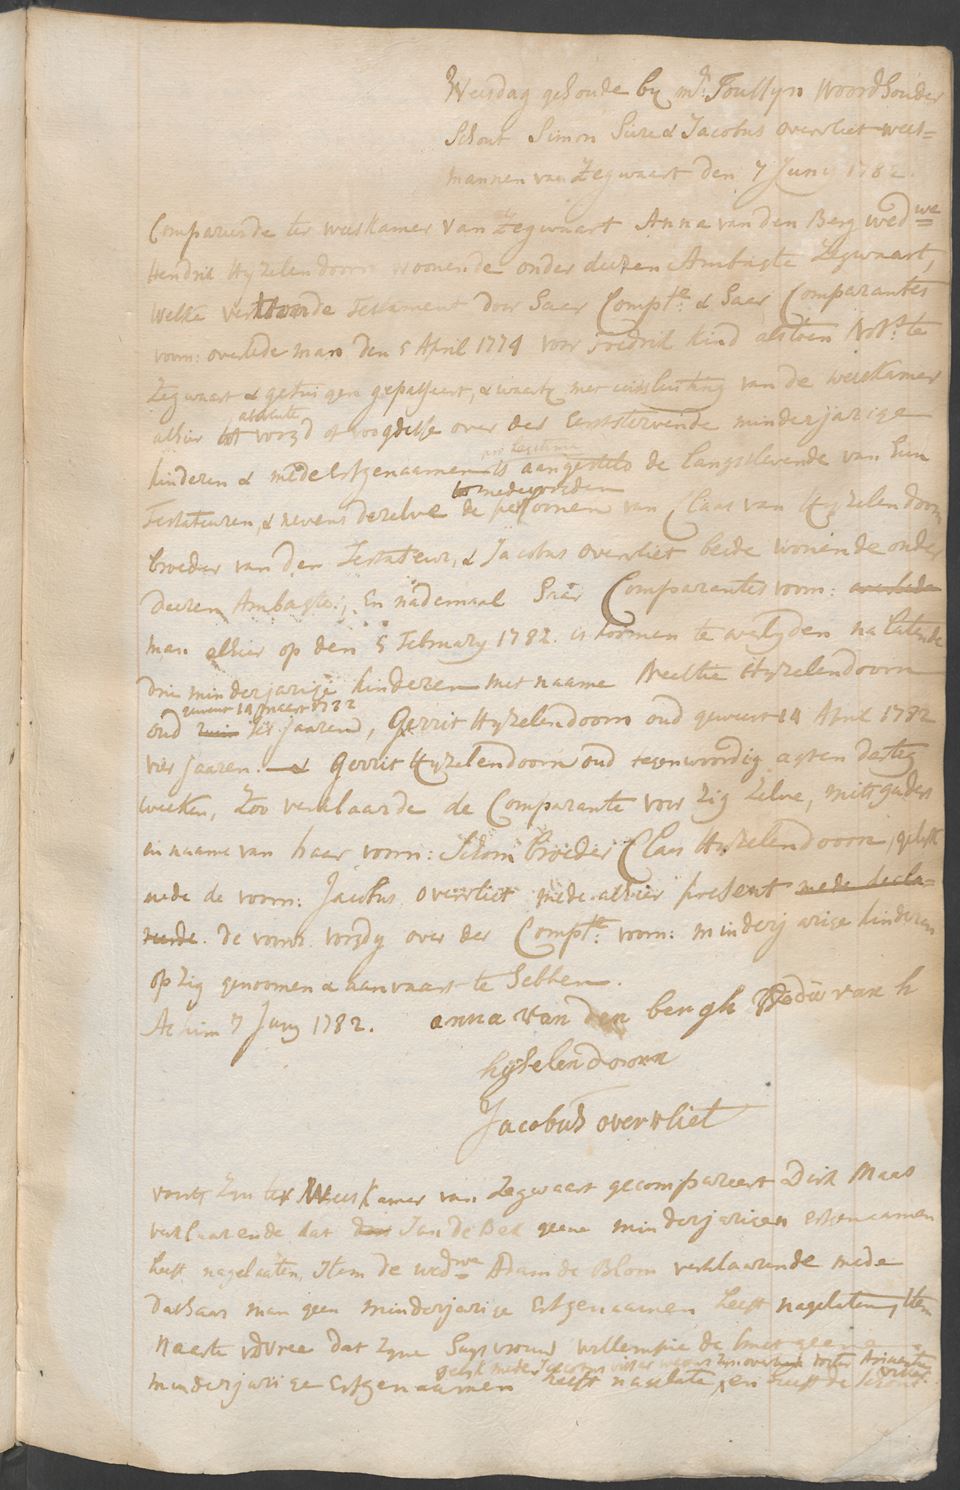 Weesdag gehoude by mr. Joullyn Woordhouder
Schout Simon Sure & Jacobus overvliet wees=
mannen van Zegwaart den 7 Juny 1782.
Compareerde ter weeskamer van Zegwaart Anna van den Berg wed.we
Hendrik Hyzelendoorn woonende onder deezen Ambagte Zegwaart,
welke vertoonde Testament door haar Compte. & haar Comparantes
voorn: overlede man den 5 April 1774 voor Fredrik kind alstoen Nots. te
Zegwaart & getuigen gepasseert, & waarby met uitsluiting van de weeskamer
alhier tot voogd of voogdesse over der eerststervende minderjarige
absolute
kinderen & mede Erfgenaamen is aangesteld de langstlevende van hun
pro legitima
Testateuren, & nevens dezelve de persoonen van Claas van Hyzelendoorn
to medevoogden
broeder van den Testateur, & Jacobus overvliet beide wonende onder
deezen Ambagte; En nademaal haar Comparantes voorn: overlede
man alhier op den 5 February 1782. is komen te overlyden nalatende
drie minderjarige kinderen met naame Neeltie Hyzelendoorn
geweest 14 maart 1782
oud ruim ses jaaren, Gerrit Hyzelendoorn oud geweest 14 April 1782
vier jaaren. & Gerrit Hyzelendoorn oud tegenwoordig agten dertig
weeken, Zoo verklaarde de Comparante voor zig zelve, mitsgaders
in naame van haar voorn: schoonbroeder Claas Hyzelendoorn, gelijk
mede de voorn: Jacobus overvliet mede alhier present mede decla=
reerde. de voors. voogdy over der Compte. voorn: minderjarige kinderen
op zig genoomen & aanvaart te hebben.
Actum 7 Juny 1782. anna van den bergh Wedu van h
hyselendoorn
Jacobus overvliet
voorts zyn ter Weeskamer van Zegwaart gecompareert Dirk Maas
verklaarende dat Jan de Bek geene minderjarigen erfgenaamen
heeft nagelaaten, Item de wed.we Adam de Blom verklaarende mede
dat haar man geen minderjarige Erfgenaamen heeft nagelaten, Item
dat zyne huysvrouw willempie de geene
gelyk mede Jacobus visser wegens zyn overleden dogter Ariaantie visser
minderjarige Erfgenaamen heeft nagelate, en heeft de schout